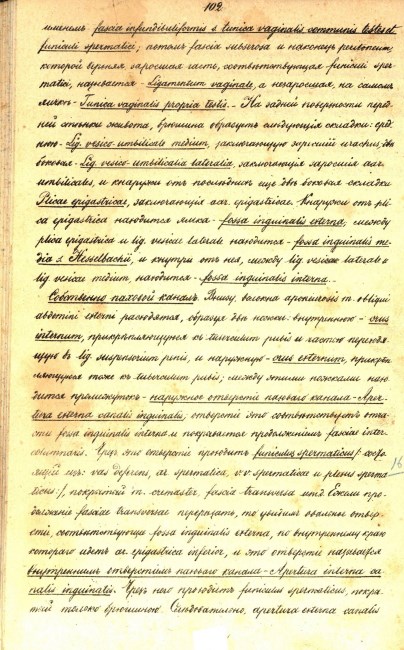 102
именемъ fascia infundibuliformis s. tunica vaginalis communis testis et
funiculi spermatici, потомъ fascia subserosa и наконецъ peritoneum,
которой верхняя заросшая часть, соотвѣтствующая funiculi sper-
matici, называется - Ligamentum vaginale, а незаросшая, на самомъ
яичкѣ - Tunica vaginalis propria testis. - На задней поверхности перед-
ней стѣнки живота, брюшина образуетъ слѣдующія складки: сред-
нюю - Lig. vesico-umbilicale medium, заключающую заросшій urachus, двѣ
боковыя - Lig. vesico-umbilicalia lateralia, заключающія заросшія aar.
umbilicales, и кнаружи отъ послѣднихъ еще двѣ боковыя складки
Plicae epigastricae, заключающія aar. epigastricae. Кнаружи отъ pli-
ca epigastrica находится ямка - fossa inguinalis externa, между
plica epigastrica и lig. vesicae laterale находится - fossa inguinalis me-
dia s. Hesselbachii, и кнутри отъ нея, между lig. vesicae laterale и
lig. vesicae medium, находится - fossa inguinalis interna. -
Собственно паховой каналъ. Внизу, волокна apeneurosis m. obliqui
abdominis externi расходятся, образуя двѣ ножки: внутреннюю - crus
internum, прикрѣпляющуюся къ tuberculum pubis и частью переходя-
щую въ lig. suspensorium penis, и наружную - crus externum, прикрѣп-
ляющуюся тоже къ tuberculum pubis; между этими ножками нахо-
дится промежутокъ - наружное отверстіе паховаго канала - Aper-
tura externa canalis inguinalis, отверстіе это соотвѣтствуетъ отча-
сти fossa inguinalis interna и покрывается продолженіемъ fascias inter-
columnaris. Чрезъ это отверстіе проходитъ funiculus spermaticus /: состо-
ящій изъ: vas deferens, ar. spermatica, v.v. spermaticae и plexus sperma-
ticus :/, покрытый m. cremaster, fascia transversa итд. Если про-
долженіе fasciae transversae перерѣзать, то увидимъ овальное отвер-
стіе, соотвѣтствующее fossa inguinalis externa, по внутреннему краю
котораго идетъ ar. epigastrica inferior, и это отверстіе называется
внутреннимъ отверстіемъ паховаго канала - Apertura interna ca-
nalis inguinalis. Чрезъ него проходитъ funiculus spermaticus, покры-
тый только брюшиною. Слѣдовательно, apertura externa canalis
16